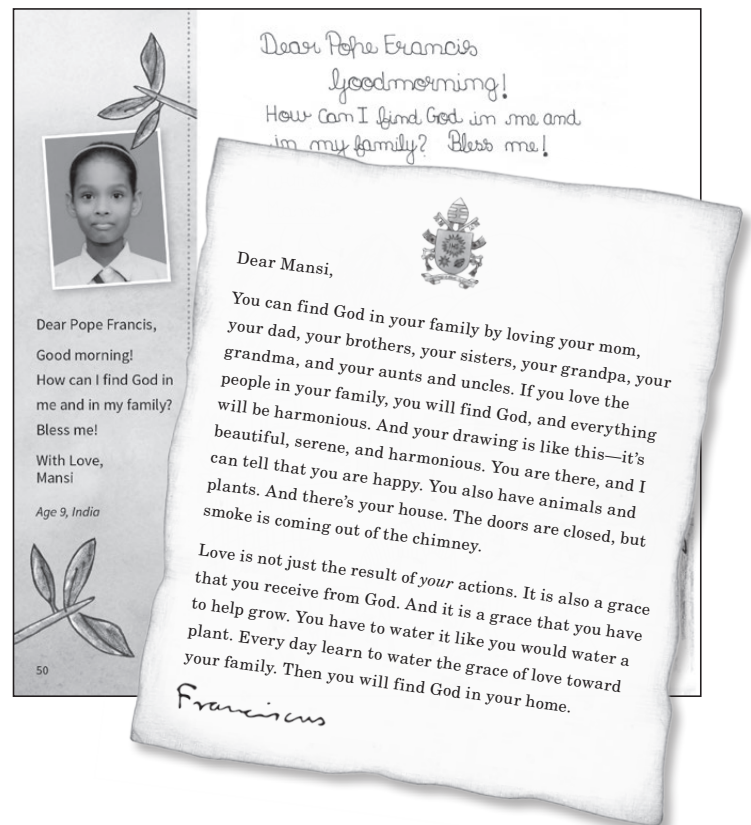 Dear Pope Francis
Goodmorning!
How can I find God in me and
in my family? Bless me!
Dear Pope Francis,
Good morning!
How can I find God in
me and in my family?
Bless me!
With Love,
Mansi
Age 9, India
50
Dear Mansi,
You can find God in your family by loving your mom,
your dad, your brothers, your sisters, your grandpa, your
grandma, and your aunts and uncles. If you love the
people in your family, you will find God, and everything
will be harmonious. And your drawing is like this—it’s
beautiful, serene, and harmonious. You are there, and I
can tell that you are happy. You also have animals and
plants. And there’s your house. The doors are closed, but
smoke is coming out of the chimney.
Love is not just the result of your actions. It is also a grace
that you receive from God. And it is a grace that you have
to help grow. You have to water it like you would water a
plant. Every day learn to water the grace of love toward
your family. Then you will find God in your home.
Franciscus